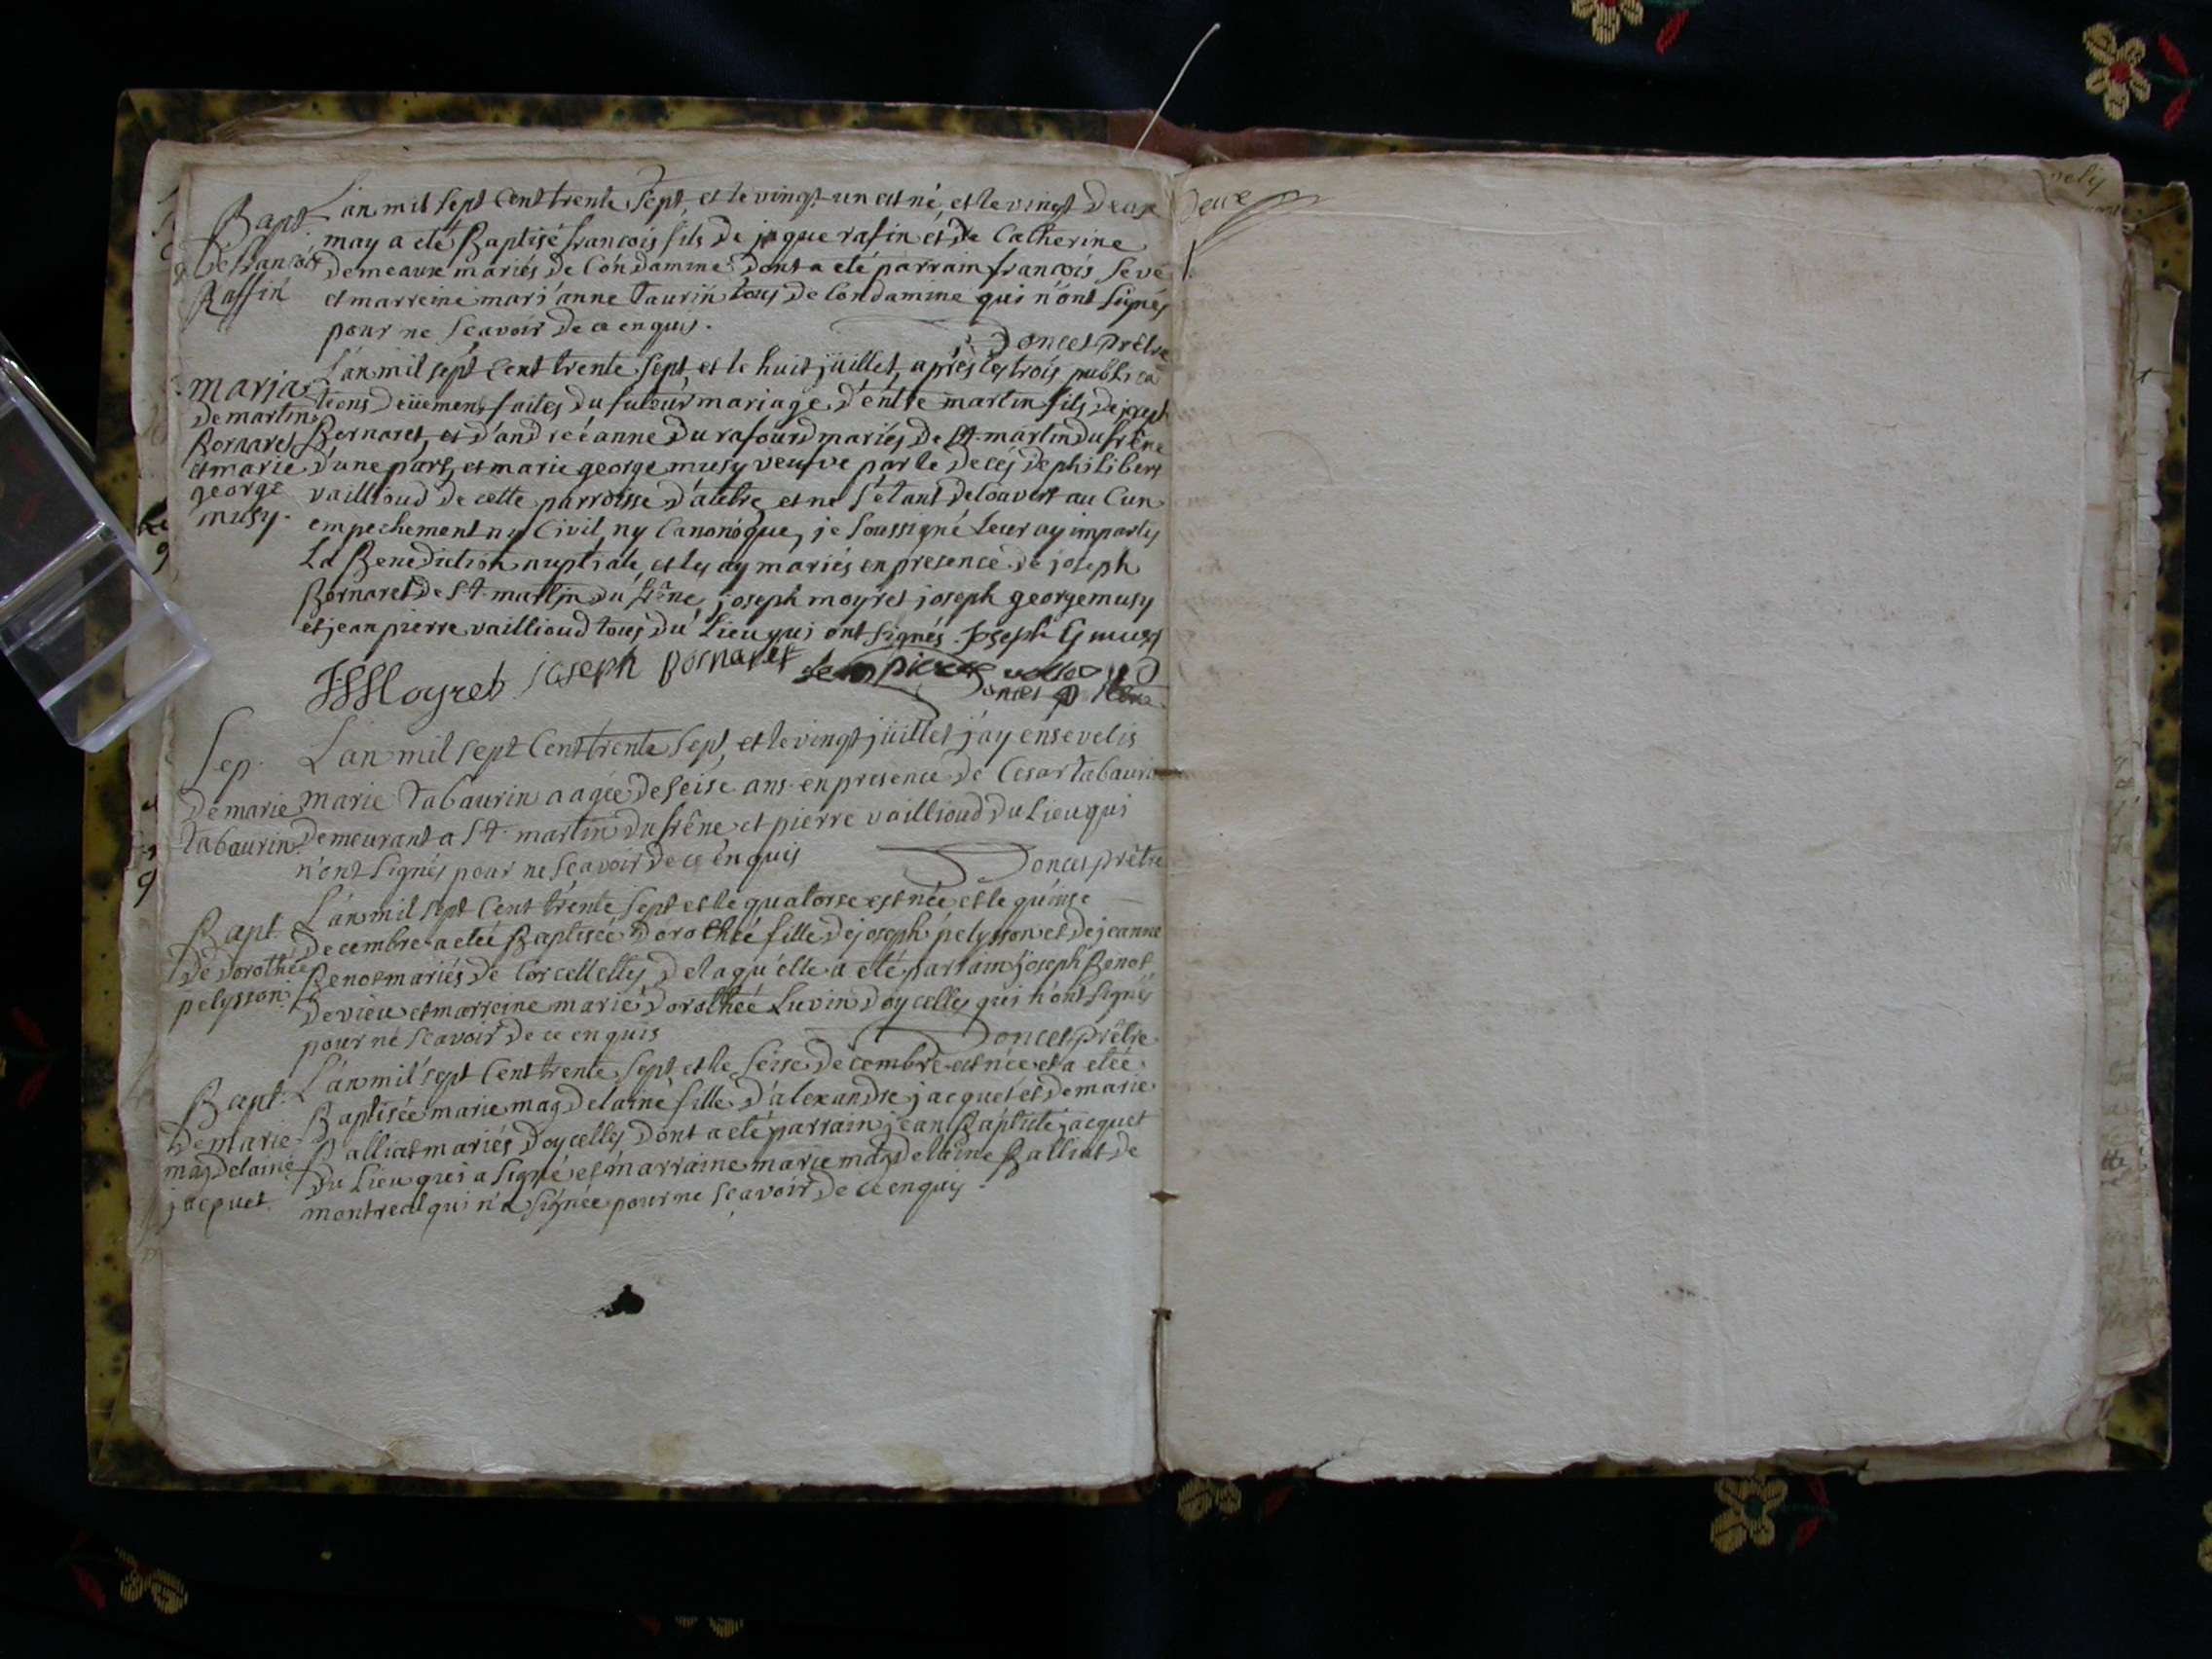 Bapt
de francois
Raffin
L'an mil sept Cent trente Sept, et le vingt un est né, et le vingt deux
may a eté Baptisé francois fils de jaque rafin et de Catherine
demeaux mariés de Condamine dont a eté parrain francois Seve
et marreine mari'anne Taurin tous de Condamine qui n'ont Signés
pour ne Scavoir de ce enquis.
Doncet prêtre
mariag
de martin
Bornaret
et marie
george
musy.
L'an mil sept Cent trente Sept, et le huit juillet, après les trois publica
tions deüement faites du futeur mariage d'entre martin fils de joseph
Bernaret, et d'andréé anne du rafourd mariés de St. martin du frêne
d'une part, et marie george musy veufve par le decés de philibert
vaillioud de cette parroisse d'autre et ne S'étant decouvert au Cun
empechement ny Civil, ny Canonique, je Soussigné Leur ay imparty
La Benediction nuptiale, et les ay mariés en presence de joseph
Bornaret de St. martin du frêne, joseph moyret joseph george musy
et jean pierre vaillioud tous du Lieu qui ont Signés. Joseph G musy
Moyret joseph bornaret jean pierre
Doncet prêtre
Sep.
de marie
Tabaurin.
L'an mil sept Cent trente Sept, et le vingt juillet j'ay ensevelis
marie Tabaurin aagée de Seise ans en presence de Cesar Tabaurin
demeurant a St. martin du frêne et pierre vaillioud du Lieu qui
n'ont Signés pour ne Scavoir de ce enquis
Doncet prêtre
Bapt.
de Dorothée
pelysson.
L'an mil sept Cent trente Sept et le quatorse est née et le quinse
decembre a eteé Baptisée dorothéé fille de joseph pelysson et de jeanne
Benot mariés de Corcellelles de laqu'elle a eté parrain joseph Benot
de vieu et marreine marie dorothéé Luvin d'oycelles qui n'ont Signés
pour ne Scavoir de ce enquis
Doncet prêtre
Bapt.
de marie
magdelaine
jacquet.
L'an mil sept Cent trente Sept et le Seise decembre est née et a eteé
Baptisée marie magdelaine fille d'alexandre jacquet et de marie
Balliat mariés d'oycelles dont a eté parrain jean Baptiste jacquet
du Lieu qui a Signé et marraine marie magdelaine Balliat de
montreal qui n'a Signée pour ne Scavoir de ce enquis.
deux